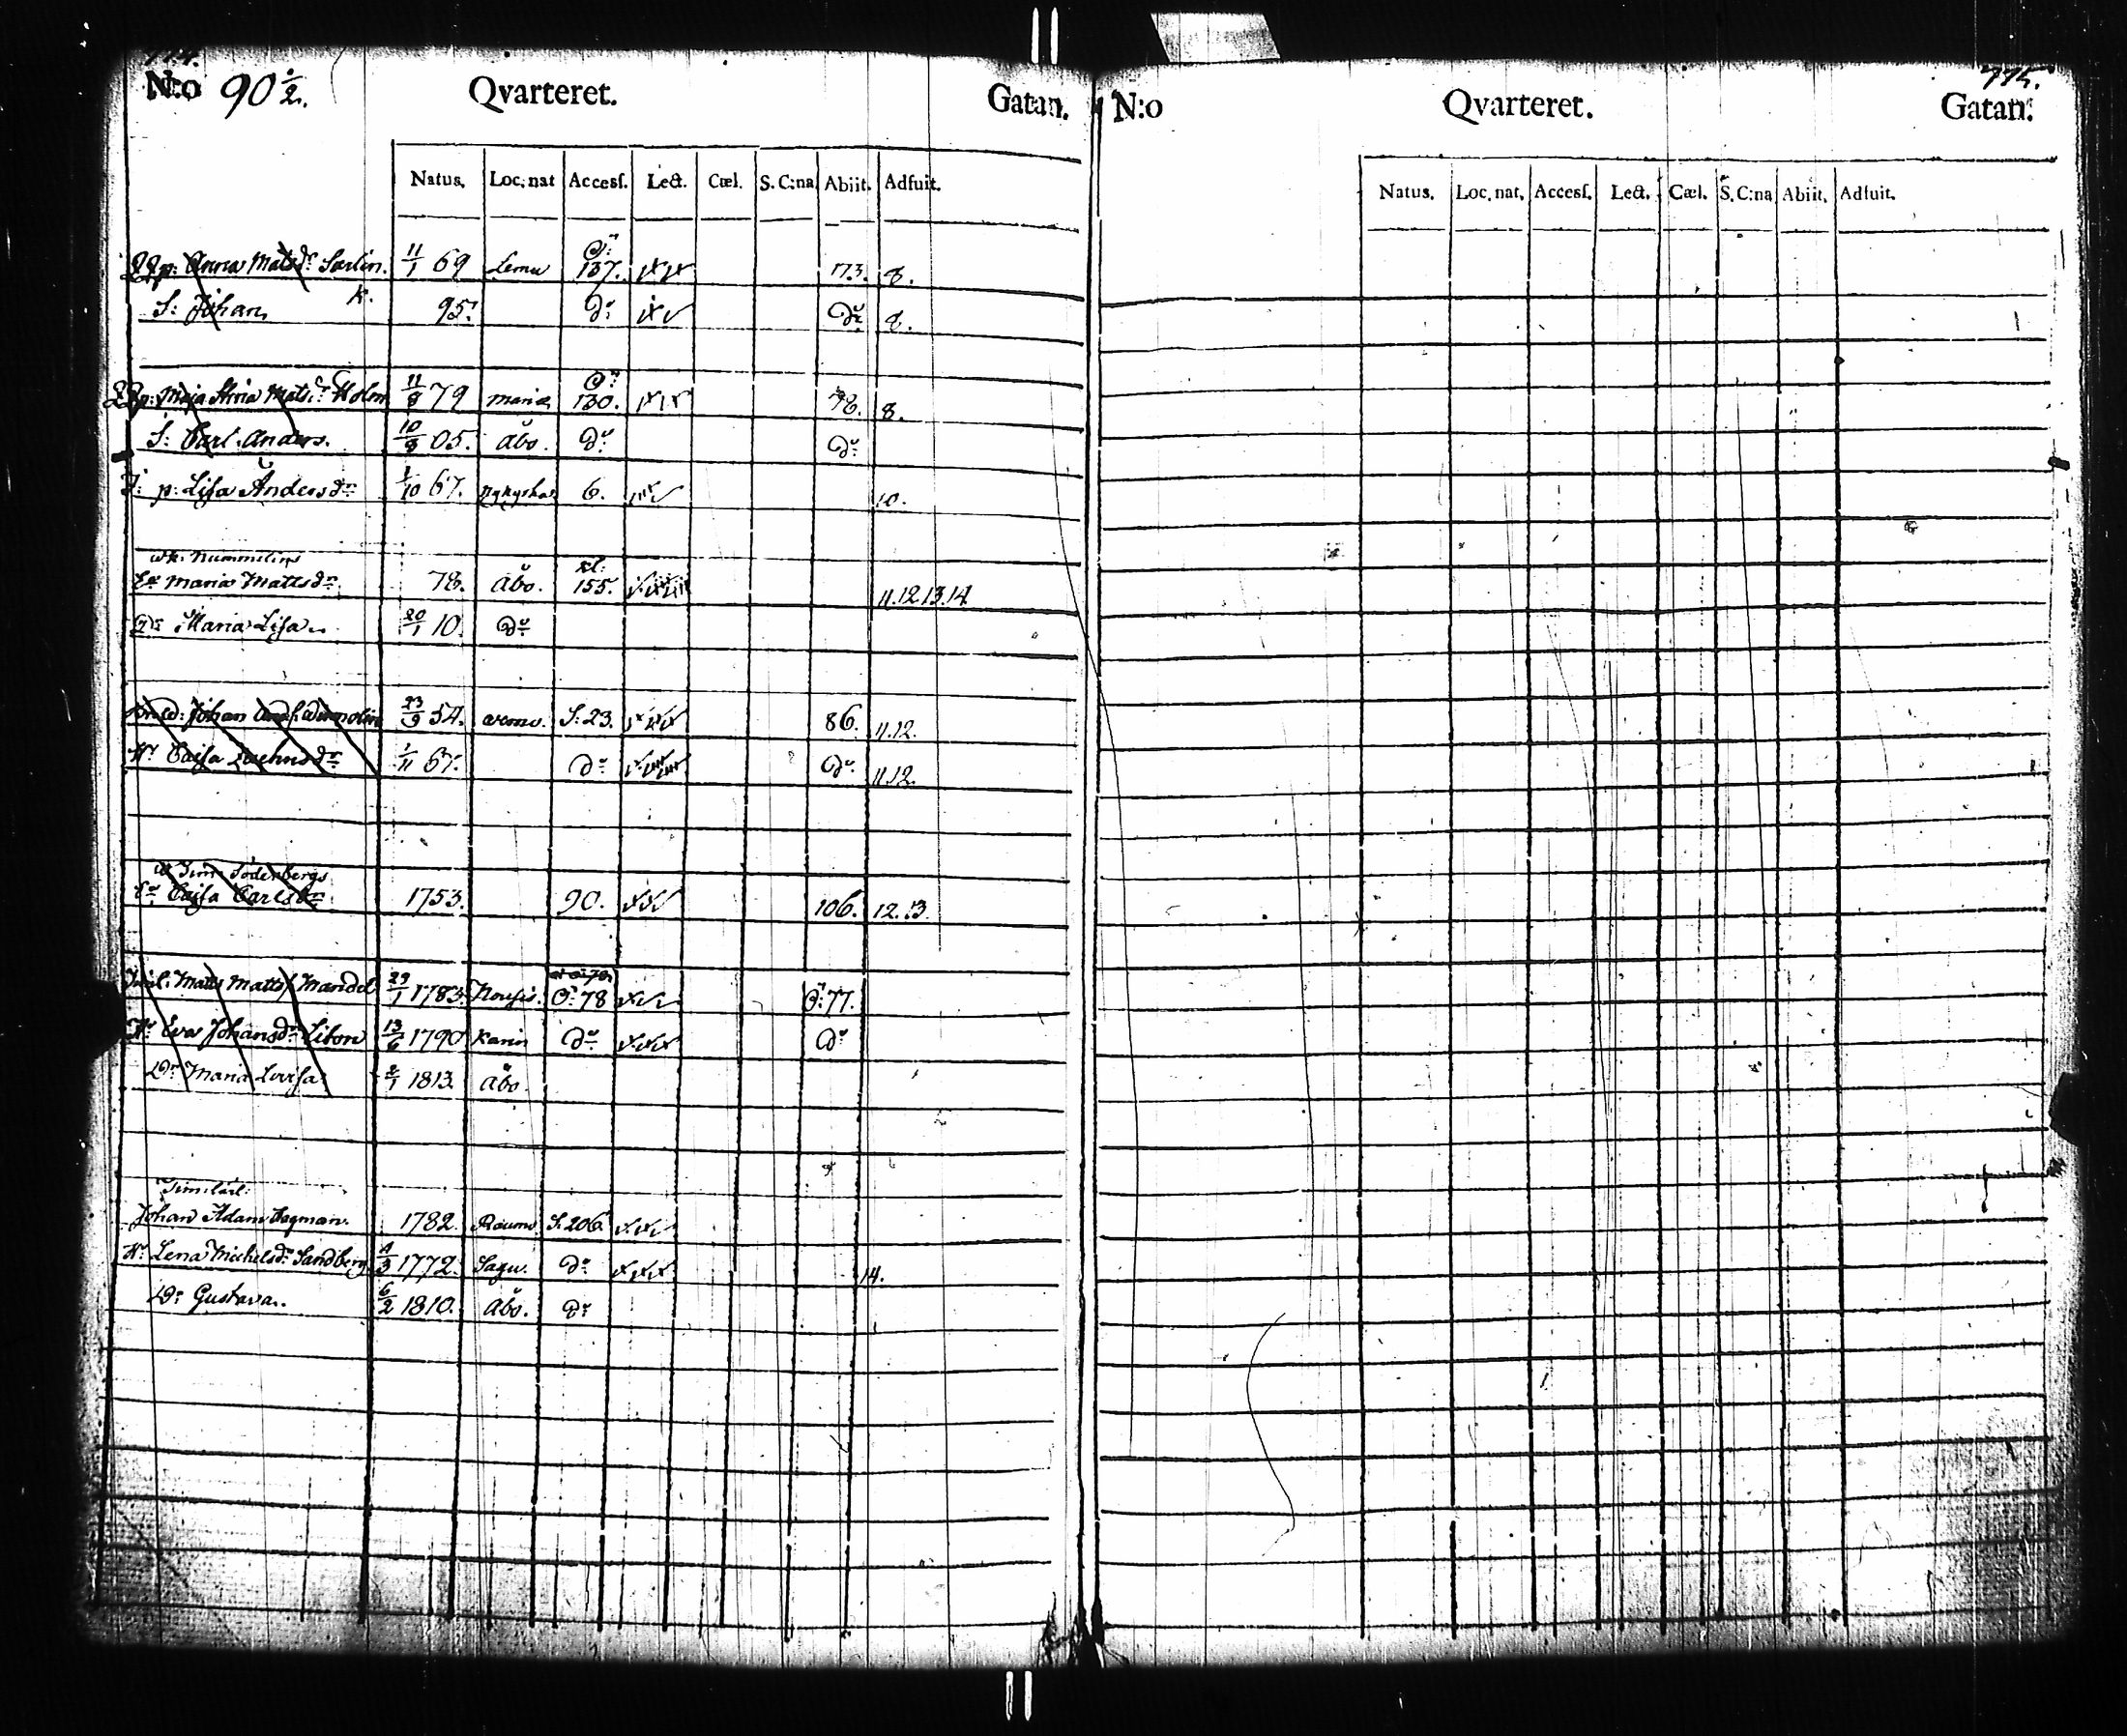 774.
N:o 90½. Qvarteret. Gatan.
Natus. Loc. nat Accesf. Lect. Cœl. S. C:na Abiit. Adfuit.
p: Anna Matsdr Sarlin. 11/1 69 Lemu Ö: 137. 173. 8.
S: Johan k. 95. do do 8.
p: Maja Stina Matsdr Holm 11/8 79 Mariæ Ö: 130. 78. 8.
S: Carl Anders. 10/9 05. Åbo. do do
p: Lisa Andersdr 1/10 67. Nykyrka 6. 10.
wk: Nummelins
Ea Maria Mattsdr 78. Åbo. 155. 11.12.13.14
Dr Maria Lisa 20/1 10. do
Johan 23/9 54. S: 23. 86. 11.12.
Hu Caisa 1/11 67. do do 11.12.
Söderbergs
Ea Caisa Carlsdr 1753. 90. 106. 12.13.
Matts Matts. Mandel 29/1 1783. Nousis. Ö: 78 Ö: 77.
Hu Eva Johansdr Libon 13/6 1790 Karin do do
Dr Maria Lovisa 2/1 1813. Åbo
Timkarl:
Johan Adam Hagman. 1782. Raumo S. 206.
Hu Lena Michelsdr Sandberg 4/3 1772. Sagu. do 14.
Dr Gustava. 6/2 1810. Åbo. do
775.
N:o Qvarteret. Gatan.
Natus. Loc. nat. Accesf. Lect. Cæl. S. C:na Abiit. Adfuit.